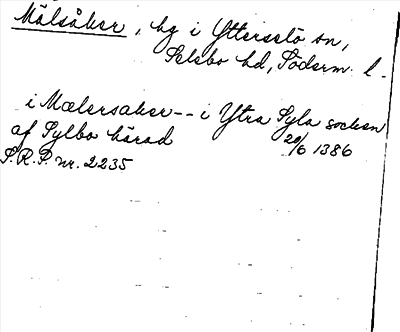 Målsåker, hg i Ytterselö sn,
Selebo hd, Söderm. l.
i Mælersaker -- i Ytra Syla socken
af Sylbo härad 20/6 1386
S.R.P. nr. 2235